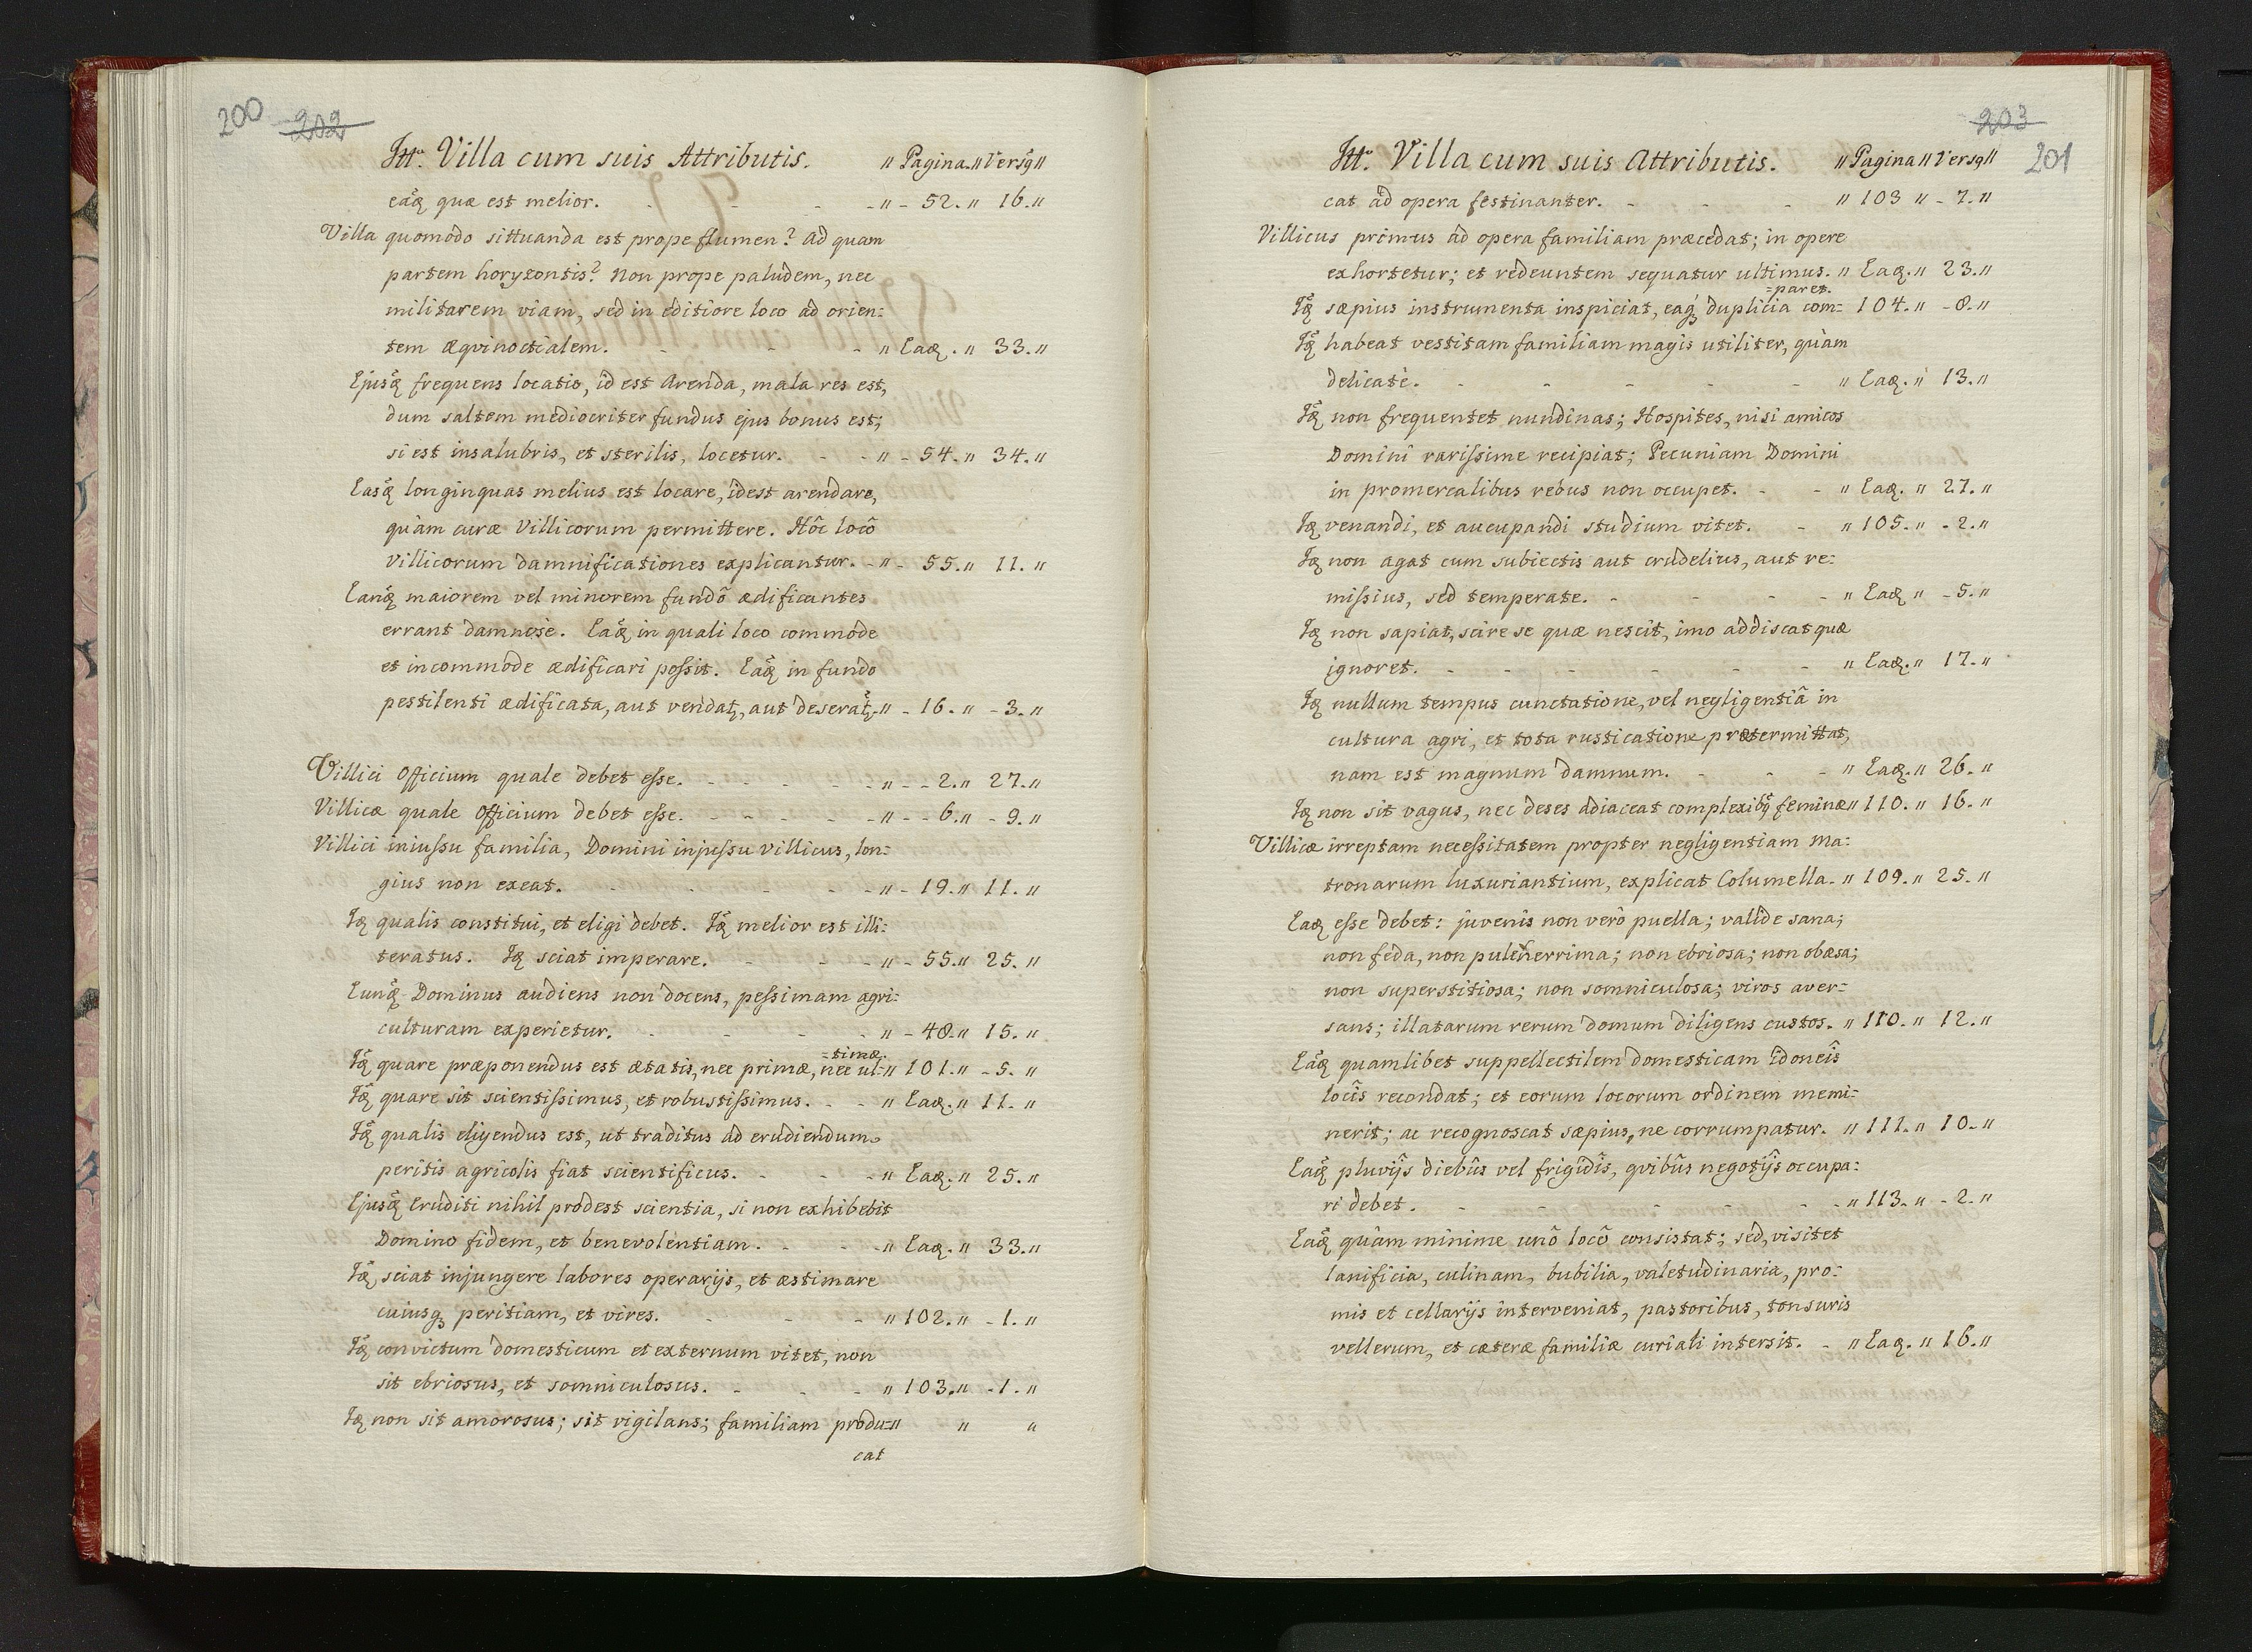 200 202
Itt. Villa cum suis Attributis. „ Pagina „ Versq́ „
eáq quæ est melior. - - - „ - 52. „ 16. „
Villa quomodo sittuanda est prope flumen? ad quam
partem horyzontis? Non prope paludem, nec
militarem viam, sed in editiore loco ad orien:
tem æqvinoctialem. - - - „ Eaq. „ 33. „
Ejusq́ frequens locatio, id est Arenda, mala res est,
dum saltem mediocriter fundus ejus bonus est;
si est insalubris, et sterilis, locetur. - - „ - 54. „ 34. „
Easq́ longinquas melius est locare, idest arendare,
quàm curæ Villicorum permittere. Hôc locô
Villicorum damnificationes explicantur. - „ - 55. „ 11. „
Eanq́ maiorem vel minorem fundô ædificantes
errant damnose. Eáq in quali loco commode
et incommode ædificari possit. Eáq in fundo
pestilenti ædificata, aut vendatq, aut deseratq́. „ - 16. „ - 3. „
Villici Officium quale debet esse. - - - „ - - 2. „ 27. „
Villicæ quale Officium debet esse. - - - - „ - - 6. „ - 9. „
Villici iniussu familia, Domini injussu villicus, lon:
gius non exeat. - - - - „ - 19. „ 11. „
Iq qualis constitui, et eligi debet. Iq́ melior est illi:
teratus. Iq sciat imperare. - - - „ - 55. „ 25. „
Eunq́ Dominus audiens non docens, pessimam agri:
culturam experietur. - - - - „ - 48. „ 15. „
=timæ.
Iq́ quare præponendus est ætatis, nec primæ, nec ul= „ 101. „ - 5. „
Iq́ quare sit scientissimus, et robustissimus. - - „ Eaq. „ 11. „
Iq́ qualis eligendus est, ut traditus ad erudiendum
peritis agricolis fiat scientificus. - - - „ Eaq. „ 25. „
Ejusq́ Eruditi nihil prodest scientia, si non exhibebit
Domino fidem, et benevolentiam. - - - „ Eaq. „ 33. „
Iq́ sciat injungere labores operarijs, et æstimare
cuiusq peritiam, et vires. - - - „ 102. „ - 1. „
Iq́ convictum domesticum et externum vitet, non
sit ebriosus, et somniculosus. - - - „ 103. „ - 1. „
Iq non sit amorosus; sit vigilans; familiam produ= „ „ „
cat
203 201
Itt. Villa cum suis Attributis. „ Pagina „ Versq „
cat ad opera festinanter. - - - „ 103 „ - 7. „
Villicus primus ad opera familiam præcedat; in opere
exhortetur; et redeuntem sequatur ultimus. „ Eaq. „ 23. „
=paret.
Iq́ sæpius instrumenta inspiciat, eaq́ duplicia com= 104. „ - 8. „
Iq́ habeat vestitam familiam magis utiliter, quàm
delicatè. - - - - - „ Eaq. „ 13. „
Iq́ non frequentet nundinas; Hospites, nisi amicos
Domini rarissime recipiat; Pecuniam Domini
in promercalibus rebus non occupet. - - „ Eaq. „ 27. „
Iq venandi, et aucupandi studium vitet. - „ 105. „ - 2. „
Iq non agat cum subiectis aut crudelius, aut re:
missius, sed temperate. - - - - „ Eaq „ - 5. „
Iq non sapiat, scire se quæ nescit, imo addiscat quæ
ignoret. - - - - - - „ Eaq. „ 17. „
Iq nullum tempus cunctatione, vel negligentiâ in
cultura agri, et tota rusticatione prætermittat,
nam est magnum damnum. - - - „ Eaq. „ 26. „
Iq non sit vagus, nec deses adiaceat complexibq́ feminæ „ 110. „ 16. „
Villicæ irreptam necessitatem propter negligentiam ma:
tronarum luxuriantium, explicat Columella. „ 109. „ 25. „
Eaq esse debet: juvenis non verò puella; valide sana;
non feda, non pulcherrima; non ebriosa; non obæsa;
non superstitiosa; non somniculosa; viros aver:
sans; illatarum rerum domum diligens custos. „ 110. „ 12. „
Eáq quamlibet suppellectilem domesticam idoneîs
locîs recondat; et eorum locorum ordinem memi:
nerit; ac recognoscat sæpius, ne corrumpatur. „ 111. „ 10. „
Eáq pluvijs diebûs vel frigidîs, qvibûs negotijs occupa:
ri debet. - - - - - - - „ 113. „ - 2. „
Eáq quàm minime unô locô consistat; sed, visitet
lanificia, culinam, bubilia, valetudinaria, pro:
mis et cellarijs interveniat, pastoribus, tonsuris
vellerum, et cæteræ familiæ curiali intersit. - „ Eaq. „ 16. „